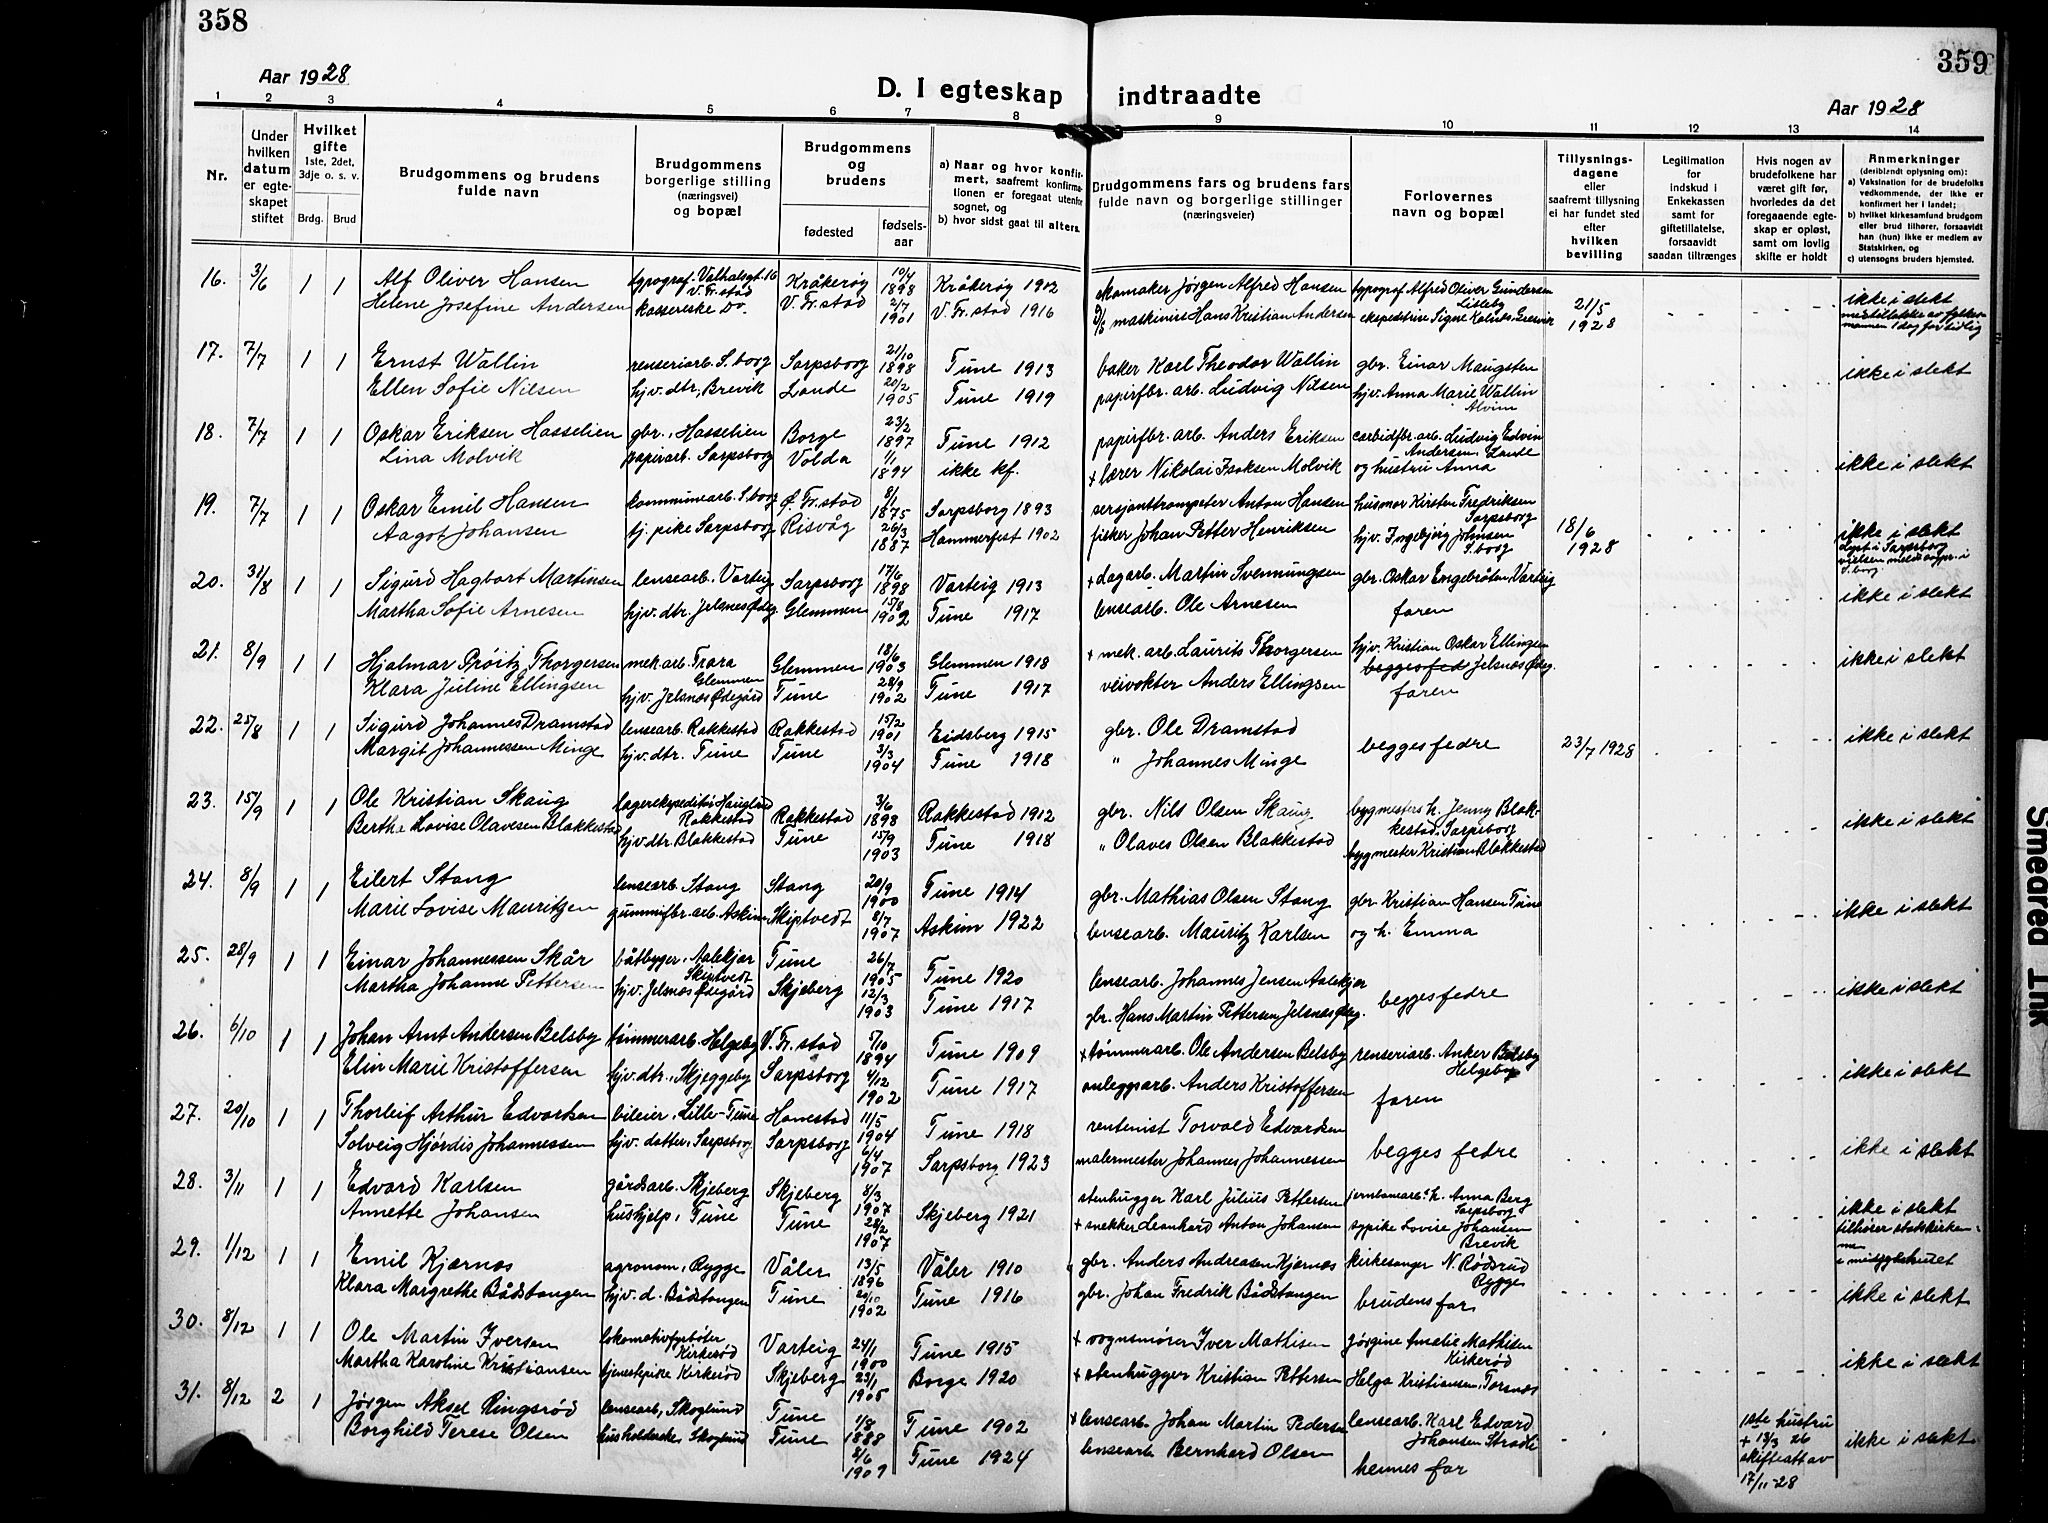 358
359
Aar 1928
D. I egteskap indtraadte
Aar 1928
1 2 3 4 5 6 7 8 9 10 11 12 13 14
Nr.
Under hvilken datum er egteskapet stiftet
Hvilket gifte 1ste, 2det, 3dje o. s. v.
Brdg. Brud
Brudgommens og brudens fulde navn
Brudgommens borgerlige stilling (næringsvei) og bopæl
Brudgommens og brudens
fødested
fødsels-aar
a) Naar og hvor konfirmert, saafremt konfirmationen er foregaat utenfor sognet, og
b) hvor sidst gaat til alters.
Brudgommens fars og brudens fars fulde navn og borgerlige stillinger (næringsveier)
Forlovernes navn og bopæl
Tillysningsdagene eller saafremt tillysning ei har fundet sted efter hvilken bevilling
Legitimation for indskud i Enkekassen samt for giftetillatelse, forsaavidt saadan tiltrænges
Hvis nogen av brudefolkene har været gift før, hvorledes da det foregaaende egteskap er opløst, samt om lovlig skifte er holdt
Anmerkninger (deriblandt oplysning om):
a) Vaksination for de brudefolks vedkommende, der ikke er konfirmert her i landet;
b) hvilket kirkesamfund brudgom eller brud tilhører, forsaavidt han (hun) ikke er medlem av Statskirken, og
c) utensogns bruders hjemsted.
16. 3/6 1 1 Alf Oliver Hansen typograf Valhalsgt. 16 V. Fr.stad Kråkerøy 10/4 1898 Kråkerøy 1902 skomaker Jørgen Alfred Hansen typograf Alfred Oliver Gundersen Lisleby 21/5 1928 ikke i slekt
Helene Josefine Andersen kassererske Do. V. Fr.stad 2/7 1901 V. Fr.stad 1916 maskinist Hans Kristian Andersen ekspeditrise Signe Gressvik
17. 7/7 1 1 Ernst Wallin renseriarb. S.borg Sarpsborg 21/10 1898 Tune 1913 baker Karl Theodor Wallin gbr. Einar Maugsten ikke i slekt
Ellen Sofie Nilsen hjv. dtr., Brevik Lande 20/2 1905 Tune 1919 papirfbr. arb. Ludvig Nilsen hjv. Anna Marie Wallin Alvim
18. 7/7 1 1 Oskar Eriksen Hasselien gbr., Hasselien Borge 23/2 1897 Tune 1912 papirfbr. arb. Anders Eriksen carbidfbr. arb. Ludvig Edvin Andersen, Lande ikke i slekt
Lina Molvik papirarb. Sarpsborg Volda 1/1 1894 ikke kf. + lærer Nikolai Isaksen Molvik og hustru Anna
19. 7/7 1 1 Oskar Emil Hansen kommunearb. S.borg Ø. Fr.stad 8/1 1875 Sarpsborg 1893 sersjanttrompeter Anton Hansen husmor Kirsten Fredriksen Sarpsborg 18/6 1928 ikke i slekt
Aagot Johansen tj. pike Sarpsborg Risvåg 26/3 1887 Hammerfest 1902 fisker Johan Petter Henriksen hjv. Ingebjørg Johnsen S.borg Lyst i Sarpsborg
20. 31/8 1 1 Sigurd Hagbart Martinsen lensearb. Varteig Sarpsborg 17/6 1898 Varteig 1913 + dagarb. Martin Svenningsen gbr. Oskar Engebråten, Varteig ikke i slekt
Martha Sofie Arnesen hjv. dtr. Jelsnes Ødeg. Glemmen 15/8 1902 Tune 1917 lensearb. Ole Arnesen faren
21. 8/9 1 1 Hjalmar Prøitz Thorgersen mek. arb. Trara Glemmen Glemmen 18/6 1903 Glemmen 1918 + mek. arb. Laurits Thorgersen hjv. Kristian Oskar Ellingsen Jelsnæs Ødeg. ikke i slekt
Klara Juline Ellingsen hjv. Jelsnæs Ødegård Tune 28/9 1902 Tune 1917 veivokter Anders Ellingsen faren
22. 25/8 1 1 Sigurd Johannes Dramstad lensearb. Rakkestad Rakkestad 15/2 1901 Eidsberg 1915 gbr. Ole Dramstad begges fedre 23/7 1928 ikke i slekt
Margit Johannessen Minge hjv. dtr. Tune Tune 3/3 1904 Tune 1918 " Johannes Minge
23. 15/9 1 1 Ole Kristian Skaug lagerekspeditør Rakkestad Rakkestad 3/6 1898 Rakkestad 1912 gbr. Nils Olsen Skaug bygmesters h. Jenny Blakkestad, Sarpsborg ikke i slekt
Berthe Lovise Olavesen Blakkestad hjv. dtr. Blakkestad Tune 15/9 1903 Tune 1918 " Olaves Olsen Blakkestad bygmester Kristian Blakkestad
24. 8/9 1 1 Eilert Stang lensearb. Stang Stang 20/9 1900 Tune 1914 gbr. Mathias Olsen Stang gbr. Kristian Hansen Tune ikke i slekt
Marie Lovise Mauritzen gummifbr. arb. Askim Skiptvedt 8/7 1907 Askim 1922 lensearb. Mauritz Karlsen og h. Emma
25. 28/9 1 1 Einar Johannessen Skår båtbygger, Aalekjær Skiptvedt Tune 26/7 1905 Tune 1920 lensearb. Johannes Jensen Aalekjær begges fedre ikke i slekt
Martha Johanne Pettersen hjv. Jelsnæs Ødegård Skjeberg 12/3 1903 Tune 1917 gbr. Hans Martin Pettersen Jelsnæs Ødeg.
26. 6/10 1 1 Johan Arnt Andersen Belsby tømmerarb. Helgeby V. Fr.stad 5/10 1894 Tune 1909 + tømmerarb. Ole Andersen Belsby renseriarb. Anker Belsby Helgeby ikke i slekt
Elin Marie Kristoffersen hjv. dtr., Skjeggeby Sarpsborg 4/12 1902 Tune 1917 anleggsarb. Anders Kristoffersen faren
27. 20/10 1 1 Thorleif Arthur Edvardsen bileier, Lille-Tune Hanestad 11/5 1904 Tune 1918 rentenist Torvald Edvardsen begges fedre ikke i slekt
Solveig Hjørdis Johannessen hjv. datter, Sarpsborg Sarpsborg 6/4 1907 Sarpsborg 1923 malermester Johannes Johannessen
28. 3/11 1 1 Edvard Karlsen gårdsarb. Skjeberg Skjeberg 8/3 1907 Skjeberg 1921 stenhugger Karl Julius Pettersen jernbanearb. h. Anna Berg Sarpsborg ikke i slekt
Annette Johansen hushjelp, Tune Tune 28/2 1907 + snekker Leonhard Anton Johansen sypike Lovise Johansen Brevik tilhører statskirken
29. 1/12 1 1 Emil Kjærnes agronom, Rygge Våler 13/5 1896 Våler 1910 gbr. Anders Andreasen Kjærnes kirkesanger N. Rødsrud Rygge ikke i slekt
Klara Margrethe Bådstangen hjv. d. Bådstangen Tune 20/10 1902 Tune 1916 gbr. Johan Fredrik Bådstangen brudens far
30. 8/12 1 1 Ole Martin Iversen lokomotivfyrbøter Kirkerød Varteig 24/1 1900 Tune 1915 + vognsmører Iver Mathisen Jørgine Amalie Mathisen Kirkerød ikke i slekt
Martha Karoline Kristiansen tjenestepike Kirkerød Skjeberg 23/1 1905 Borge 1920 + stenhugger Kristian Pettersen Helga Kristiansen, Torsnes
31. 8/12 2 1 Jørgen Aksel Ringsrød lensearb, Skoglund Tune 1/8 1888 Tune 1902 + lensearb. Johan Martin Pedersen lensearb. Karl Edvard Johansen 1ste hustru + 13/3 26 skifteatt av 17/11-28 ikke i slekt
Borghild Terese Olsen husholderske Skoglund Tune 8/6 1909 Tune 1924 lensearb Bernhard Olsen hennes far
Smeared Ink